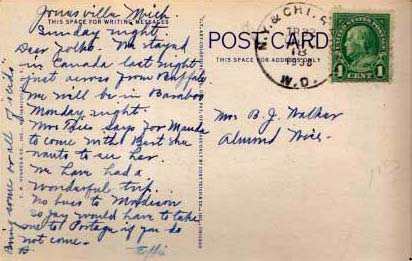 Jonesville, Mich.
THIS SPACE FOR WRITING MESSAGES
Sunday night.
Dear Folks. We stayed
in Canada last night
just across from Buffalo
We will be in Baraboo
Monday night.
Mrs Dies says for Mauda
to come with Bert she
wants to see her.
We have had a
wonderful trip.
No buss to Madison
so Jay would have to take
me to Portage if you do
not come.
Effie
Bring some or all of
POST CARD
THIS SPACE FOR ADDRESS ONLY
N.Y. & CHI.
18
W.D.
1 CENT 1
Mrs B. J. Walker
Almond Wis.